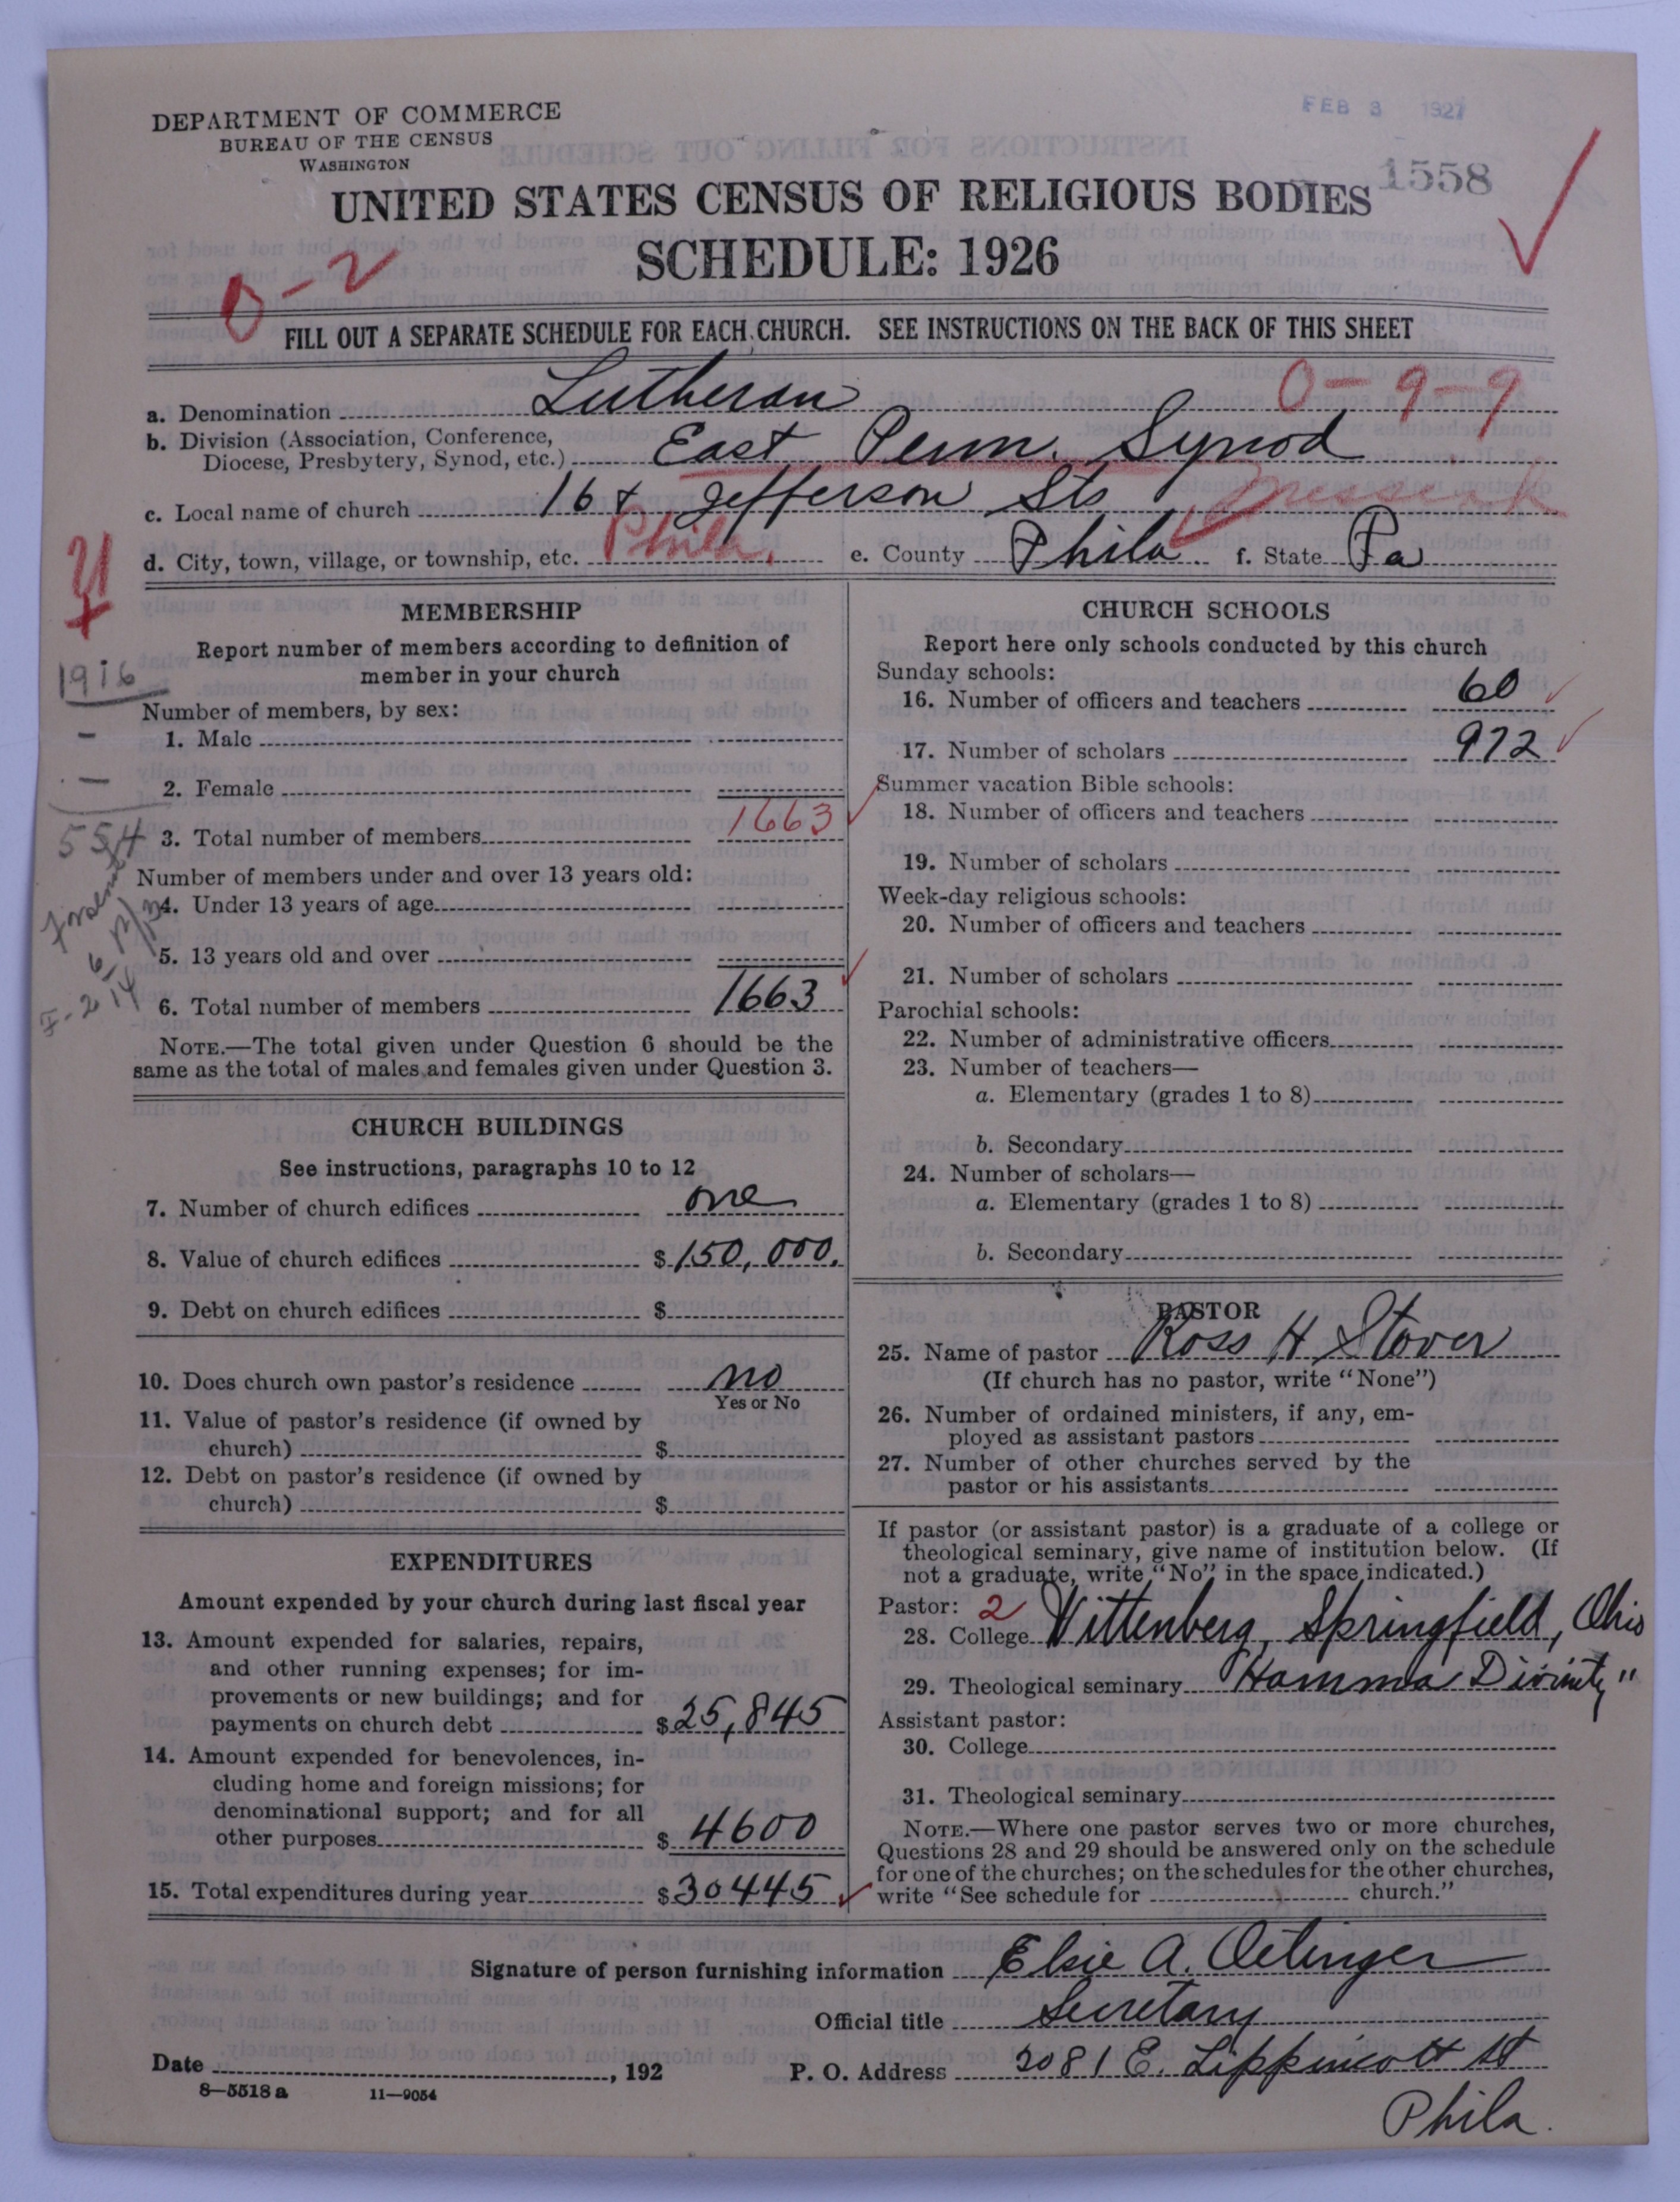 DEPARTMENT OF COMMERCE
BUREAU OF THE CENSUS
WASHINGTON
FEB 3 1927
1558
UNITED STATES CENSUS OF RELIGIOUS BODIES
SCHEDULE: 1926
0-2
FILL OUT A SEPARATE SCHEDULE FOR EACH CHURCH. SEE INSTRUCTIONS ON THE BACK OF THIS SHEET
0-9-9
a. Denomination Lutheran
b. Division (Association, Conference,
Diocese, Presbytery, Synod, etc.) East Penn. Synod
c. Local name of church 16 & Jefferson Sts. Messiah
d. City, town, village, or township, etc. Phila. e. County Phila. f. State Pa
MEMBERSHIP
Report number of members according to definition of
member in your church
1916
Number of members, by sex:
- 1. Male
- 2. Female
554 3. Total number of members 1663
Number of members under and over 13 years old:
4. Under 13 years of age
5. 13 years old and over
6. Total number of members 1663
NOTE.—The total given under Question 6 should be the
same as the total of males and females given under Question 3.
CHURCH BUILDINGS
See instructions, paragraphs 10 to 12
7. Number of church edifices one
8. Value of church edifices $150,000.
9. Debt on church edifices $
10. Does church own pastor's residence no
Yes or No
11. Value of pastor's residence (if owned by
church) $
12. Debt on pastor's residence (if owned by
church) $
EXPENDITURES
Amount expended by your church during last fiscal year
13. Amount expended for salaries, repairs,
and other running expenses; for im-
provements or new buildings; and for
payments on church debt $25,845
14. Amount expended for benevolences, in-
cluding home and foreign missions; for
denominational support; and for all
other purposes $4600
15. Total expenditures during year $30445
CHURCH SCHOOLS
Report here only schools conducted by this church
Sunday schools:
16. Number of officers and teachers 60
17. Number of scholars 972
Summer vacation Bible schools:
18. Number of officers and teachers
19. Number of scholars
Week-day religious schools:
20. Number of officers and teachers
21. Number of scholars
Parochial schools:
22. Number of administrative officers
23. Number of teachers—
a. Elementary (grades 1 to 8)
b. Secondary
24. Number of scholars—
a. Elementary (grades 1 to 8)
b. Secondary
PASTOR
25. Name of pastor Ross H Stover
(If church has no pastor, write "None")
26. Number of ordained ministers, if any, em-
ployed as assistant pastors
27. Number of other churches served by the
pastor or his assistants
If pastor (or assistant pastor) is a graduate of a college or
theological seminary, give name of institution below. (If
not a graduate, write "No" in the space indicated.)
Pastor: 2
28. College Wittenberg, Springfield, Ohio
29. Theological seminary "Hamma Divinity"
Assistant pastor:
30. College
31. Theological seminary
NOTE.—Where one pastor serves two or more churches,
Questions 28 and 29 should be answered only on the schedule
for one of the churches; on the schedules for the other churches,
write "See schedule for church."
Signature of person furnishing information Elsie A. Oetinger
Official title Secretary
Date , 192 P. O. Address 2081 E. Lippincott St
Phila.
8-5518a 11-9054